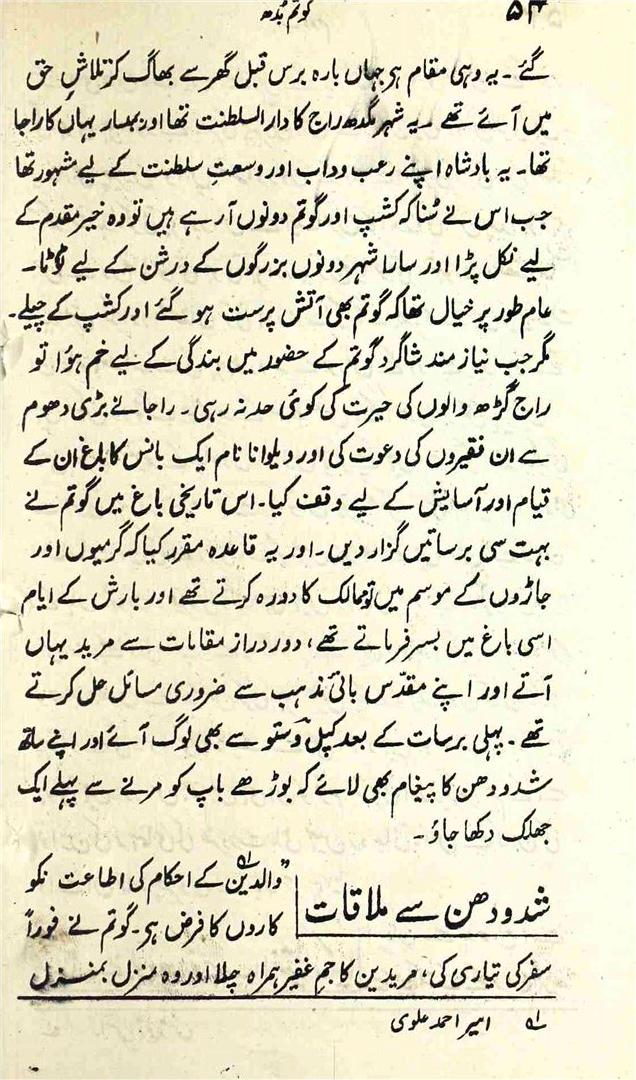 گوتم بُدھ ۵۴
گئے ۔ یہ وہی مقام ہی جہاں بارہ برس قبل گھر سے بھاگ کر تلاشِ حق
میں آئے تھے ۔ یہ شہر مگدھ راج کا دارالسلطنت تھا اور بمبسار یہاں کا راجا
تھا۔ یہ بادشاہ اپنے رعب وداب اور وسعتِ سلطنت کے لیے مشہور تھا
جب اس نے سُنا کہ کشپ اور گوتم دونوں آرہے ہیں تو وہ خیر مقدم کے
لیے نکل پڑا اور سارا شہر دونوں بزرگوں کے درشن کے لیے ٹوٹا۔
عام طور پر خیال تھا کہ گوتم بھی آتش پرست ہو گئے اور کشپ کے چیلے۔
مگر جب نیاز مند شاگرد گوتم کے حضور میں بندگی کے لیے خم ہوٗا تو
راج گڑھ والوں کی حیرت کی کوئی حد نہ رہی ۔ راجا نے بڑی دھوم
سے ان فقیروں کی دعوت کی اور ویلوانا نام ایک بانس کا باغ ان کے
قیام اور آسایش کے لیے وقف کیا۔ اس تاریخی باغ میں گوتم نے
بہت سی برساتیں گزار دیں ۔ اور یہ قاعدہ مقرر کیا کہ گرمیوں اور
جاڑوں کے موسم میں تو ممالک کا دورہ کرتے تھے اور بارش کے ایام
اسی باغ میں بسر فرماتے تھے، دور دراز مقامات سے مرید یہاں
آتے اور اپنے مقدّس بانیٔ مذہب سے ضروری مسائل حل کرتے
تھے ۔ پہلی برسات کے بعد کپل وستو سے بھی لوگ آئے اور اپنے ساتھ
شدودھن کا پیغام بھی لائے کہ بوڑھے باپ کو مرنے سے پہلے ایک
جھلک دکھا جاؤ ۔
شدودھن سے ملاقات
"والدین لہ کے احکام کی اطاعت نکو
کاروں کا فرض ہی۔ گوتم نے فوراً
سفر کی تیاری کی، مریدین کا جمِ غفیر ہمراہ چلا اور وہ منزل بمنزل
لہ امیر احمد علوی